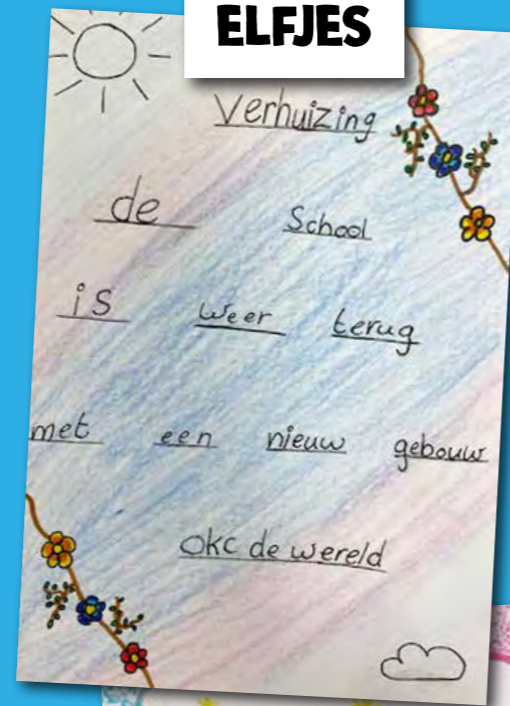 ELFJES
Verhuizing
de School
is weer terug
met een nieuw gebouw
okc de wereld